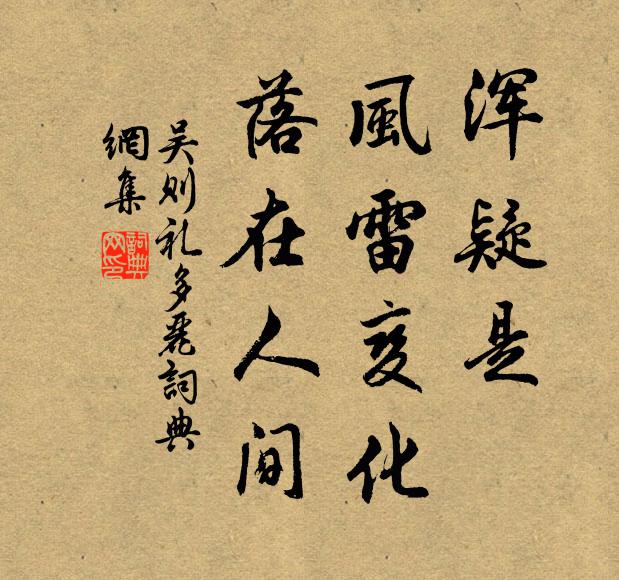 浑疑是
風雷变化
落在人间
吴则礼多麗詞典
網集
詞典
网印